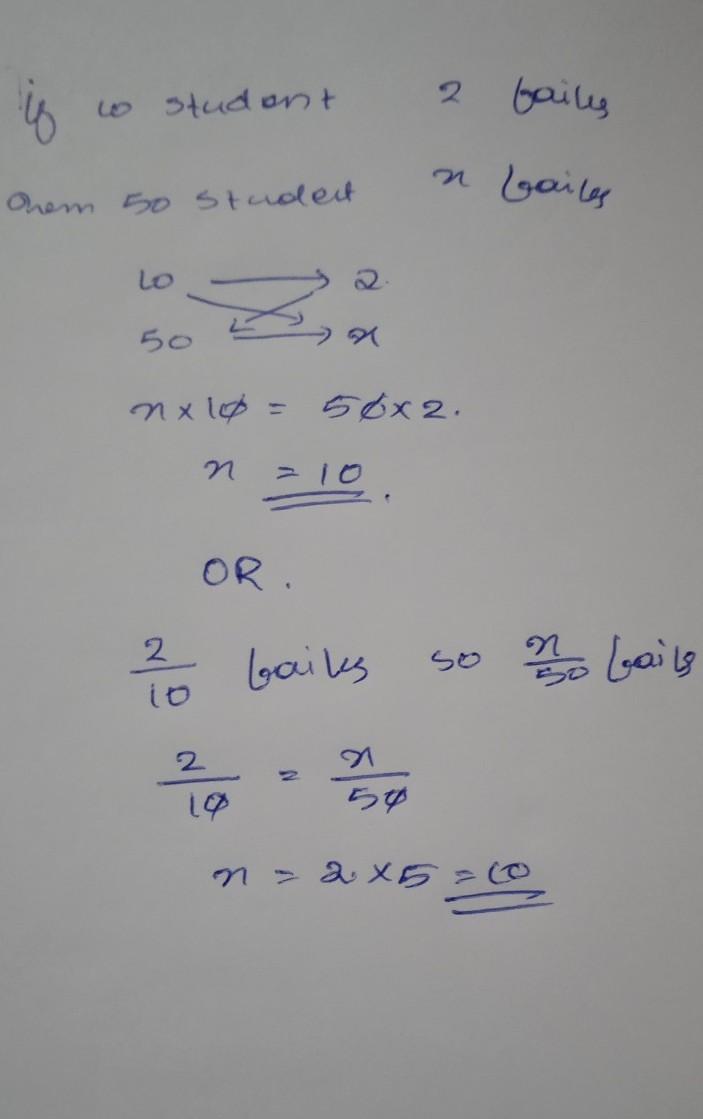 if 10 student 2 fails
then 50 student x fails
10 → 2
50 → x
x × 10 = 50 × 2.
x = 10.
OR.
2/10 fails so x/50 fails
2/10 = x/50
x = 2 × 5 = 10